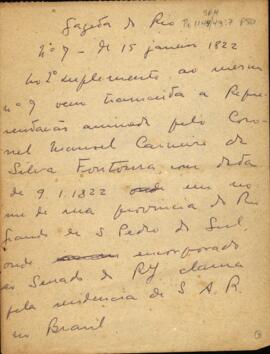 Gazeta do Rio
Nº 7 - de 15 janeiro 1822
No 2º suplemento ao mesmo
nº 7 vem transcrita a Repre-
sentação assinada pelo Coro-
nel Manoel Carneiro da
Silva Fontoura com data
de 9.1.1822 onde em no
me de sua provincia do Rio
Grande de S Pedro do Sul,
onde incorporado
ao Senado do RJ clama
pela residencia de S.A.R.
no Brasil